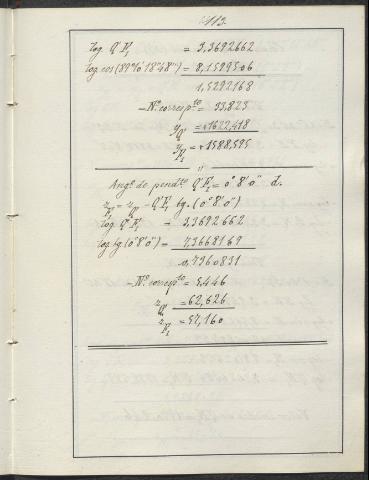 113.
log. Q' P'₁ = 3,3692662
log. cos (89°10'18"48"') = 8,1599506
1,5292168
– Nº. corresp.te = 33,823
y Q' = +1622,418
y P'₁ = +1588,595
"
Ang.º de pend.te Q' P'₁ = 0° 8' 0" d.
z P'₁ = z Q' – Q' P'₁ tg. (0° 8' 0")
log. Q' P'₁ = 3,3692662
log. tg. (0° 8' 0") = 7,3668169
0,7360831
– Nº. corresp.te = 5,446
z Q' = 62,626
z P'₁ = 57,160